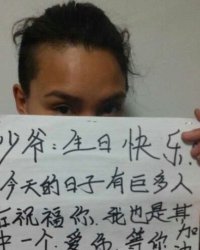 少爷:生日快乐.
今天的日子有巨多人
在祝福你.我也是其
中一个.爱你.等你加